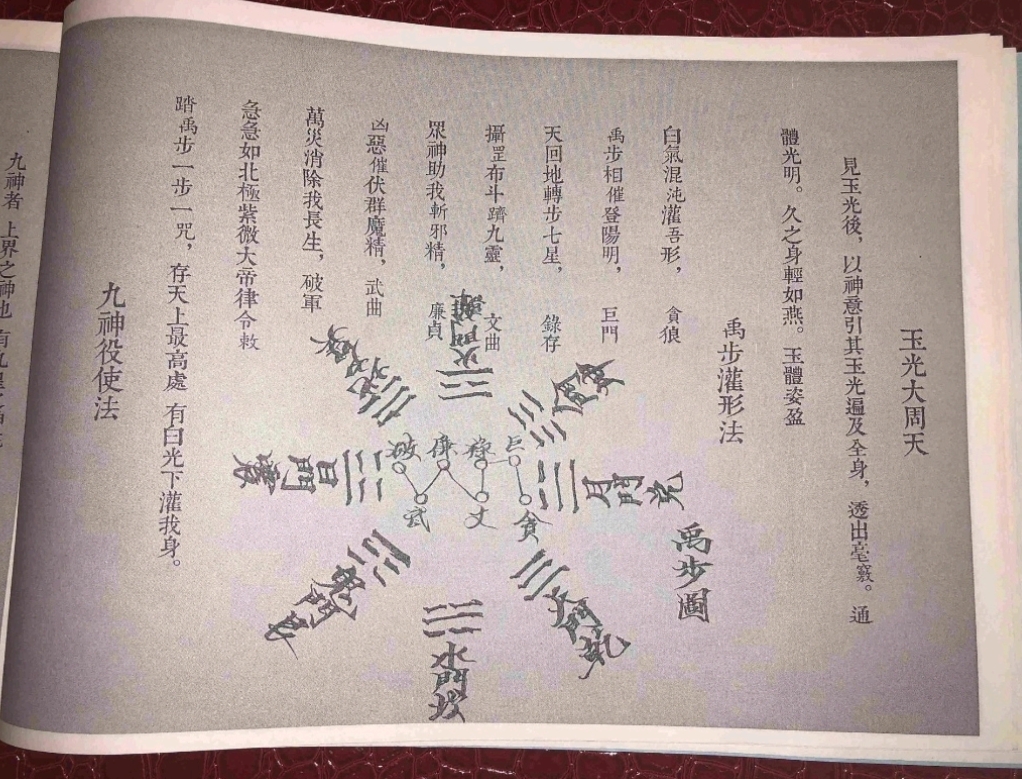 玉光大周天
見玉光後，以神意引其玉光遍及全身，透出毫竅。通
體光明。久之身輕如燕。玉體姿盈
禹步灌形法
白氣混沌灌吾形，貪狼
禹步相催登陽明，巨門
天回地轉步七星，錄存
攝罡布斗躋九靈，文曲
眾神助我斬邪精，廉貞
凶惡催伏群魔精，武曲
萬災消除我長生，破軍
急急如北極紫微大帝律令敕
踏禹步一步一咒，存天上最高處有白光下灌我身。
禹步圖
火門離
月門兌
天門乾
水門坎
鬼門艮
日門震
風門巽
破
廉
祿
巨
武
文
貪
九神役使法
九神者上界之神也